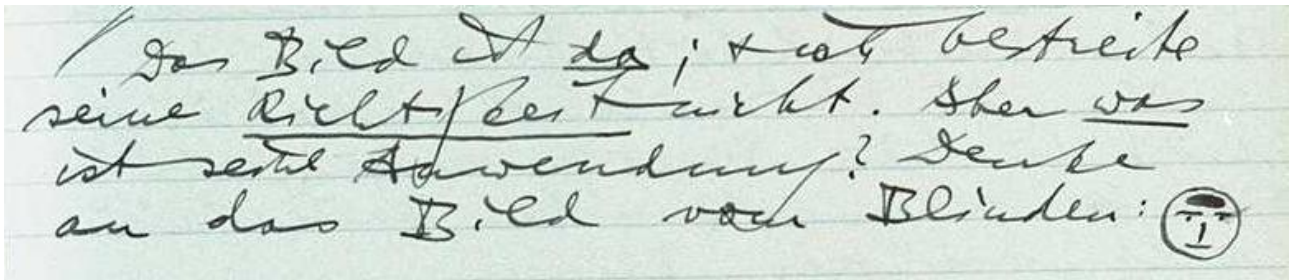 / Das Bild ist da; + ich bestreite
seine Richtigkeit nicht. Aber was
ist seine Anwendung? Denke
an das Bild vom Blinden: